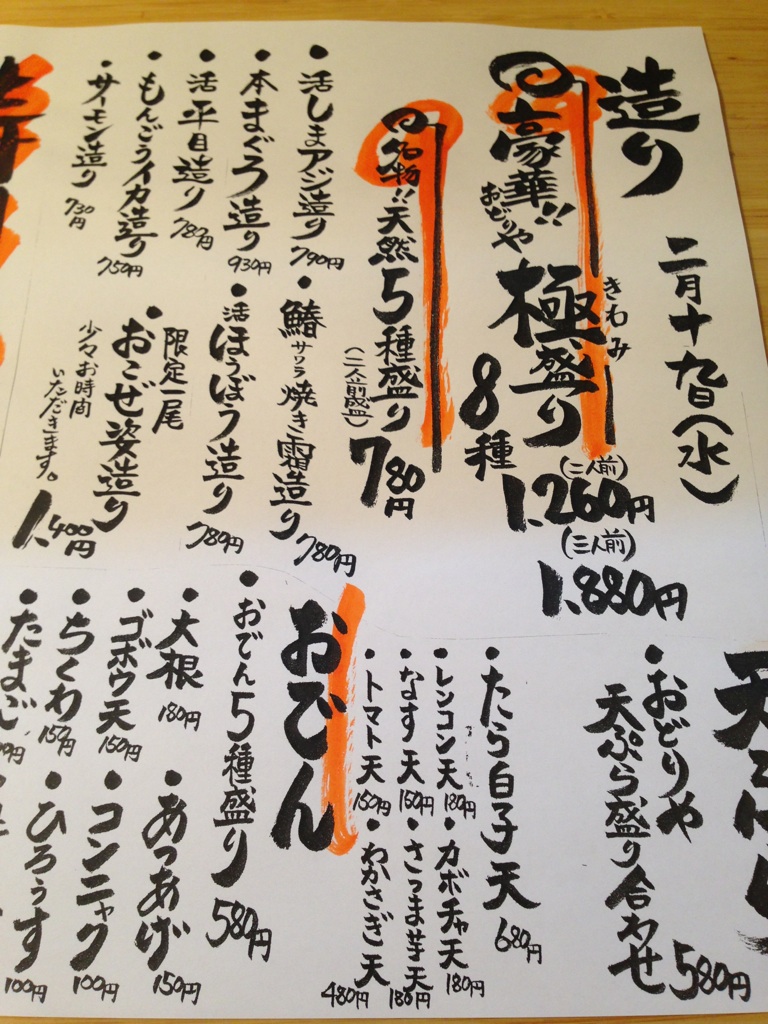 造り
二月十九日(水)
豪華!!
おどりや
極盛り
きわみ
8種
(二人前)
1.260円
(三人前)
1.880円
名物!!
天然5種盛り
(二人前盛)
780円
活しまアジ造り
790円
鰆サワラ焼き霜造り
780円
本まぐろ造り
930円
活ほうぼう造り
780円
活平目造り
780円
限定一尾
おこぜ姿造り
少々お時間
いただきます。
1.400円
もんごうイカ造り
750円
サーモン造り
730円
おどりや
天ぷら盛り合わせ
580円
たら白子天
680円
レンコン天
180円
カボチャ天
180円
なす天
150円
さつま芋天
180円
トマト天
150円
わかさぎ天
480円
おでん
おでん5種盛り
580円
大根
180円
あつあげ
150円
ゴボウ天
150円
コンニャク
100円
ちくわ
150円
ひろうす
100円
たまご